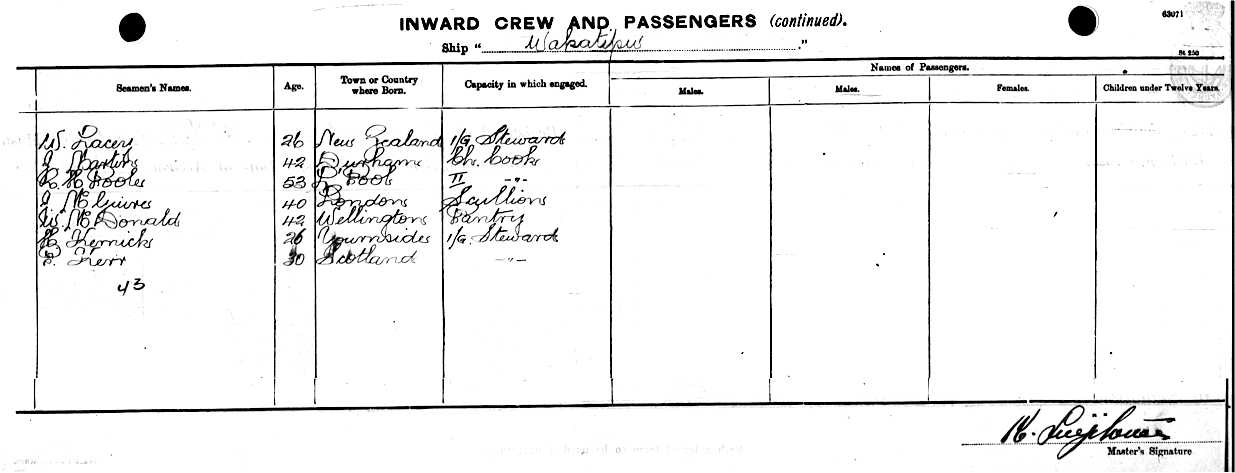 INWARD CREW AND PASSENGERS (continued).
63071
Ship "Wakatipu."
St 250
Seamen's Names. Age. Town or Country where Born. Capacity in which engaged. Names of Passengers.
Males. Males. Females. Children under Twelve Years.
W. 26 New Zealand 1/G Steward
J. 42 Durham Ch. Cook
H. 53 L'Pool II -"-
J. McGuires 40 London Scullion
W. McDonald 42 Wellington Pantry
26 1/G. Steward
Kerr 30 Scotland -"-
43
H.
Master's Signature